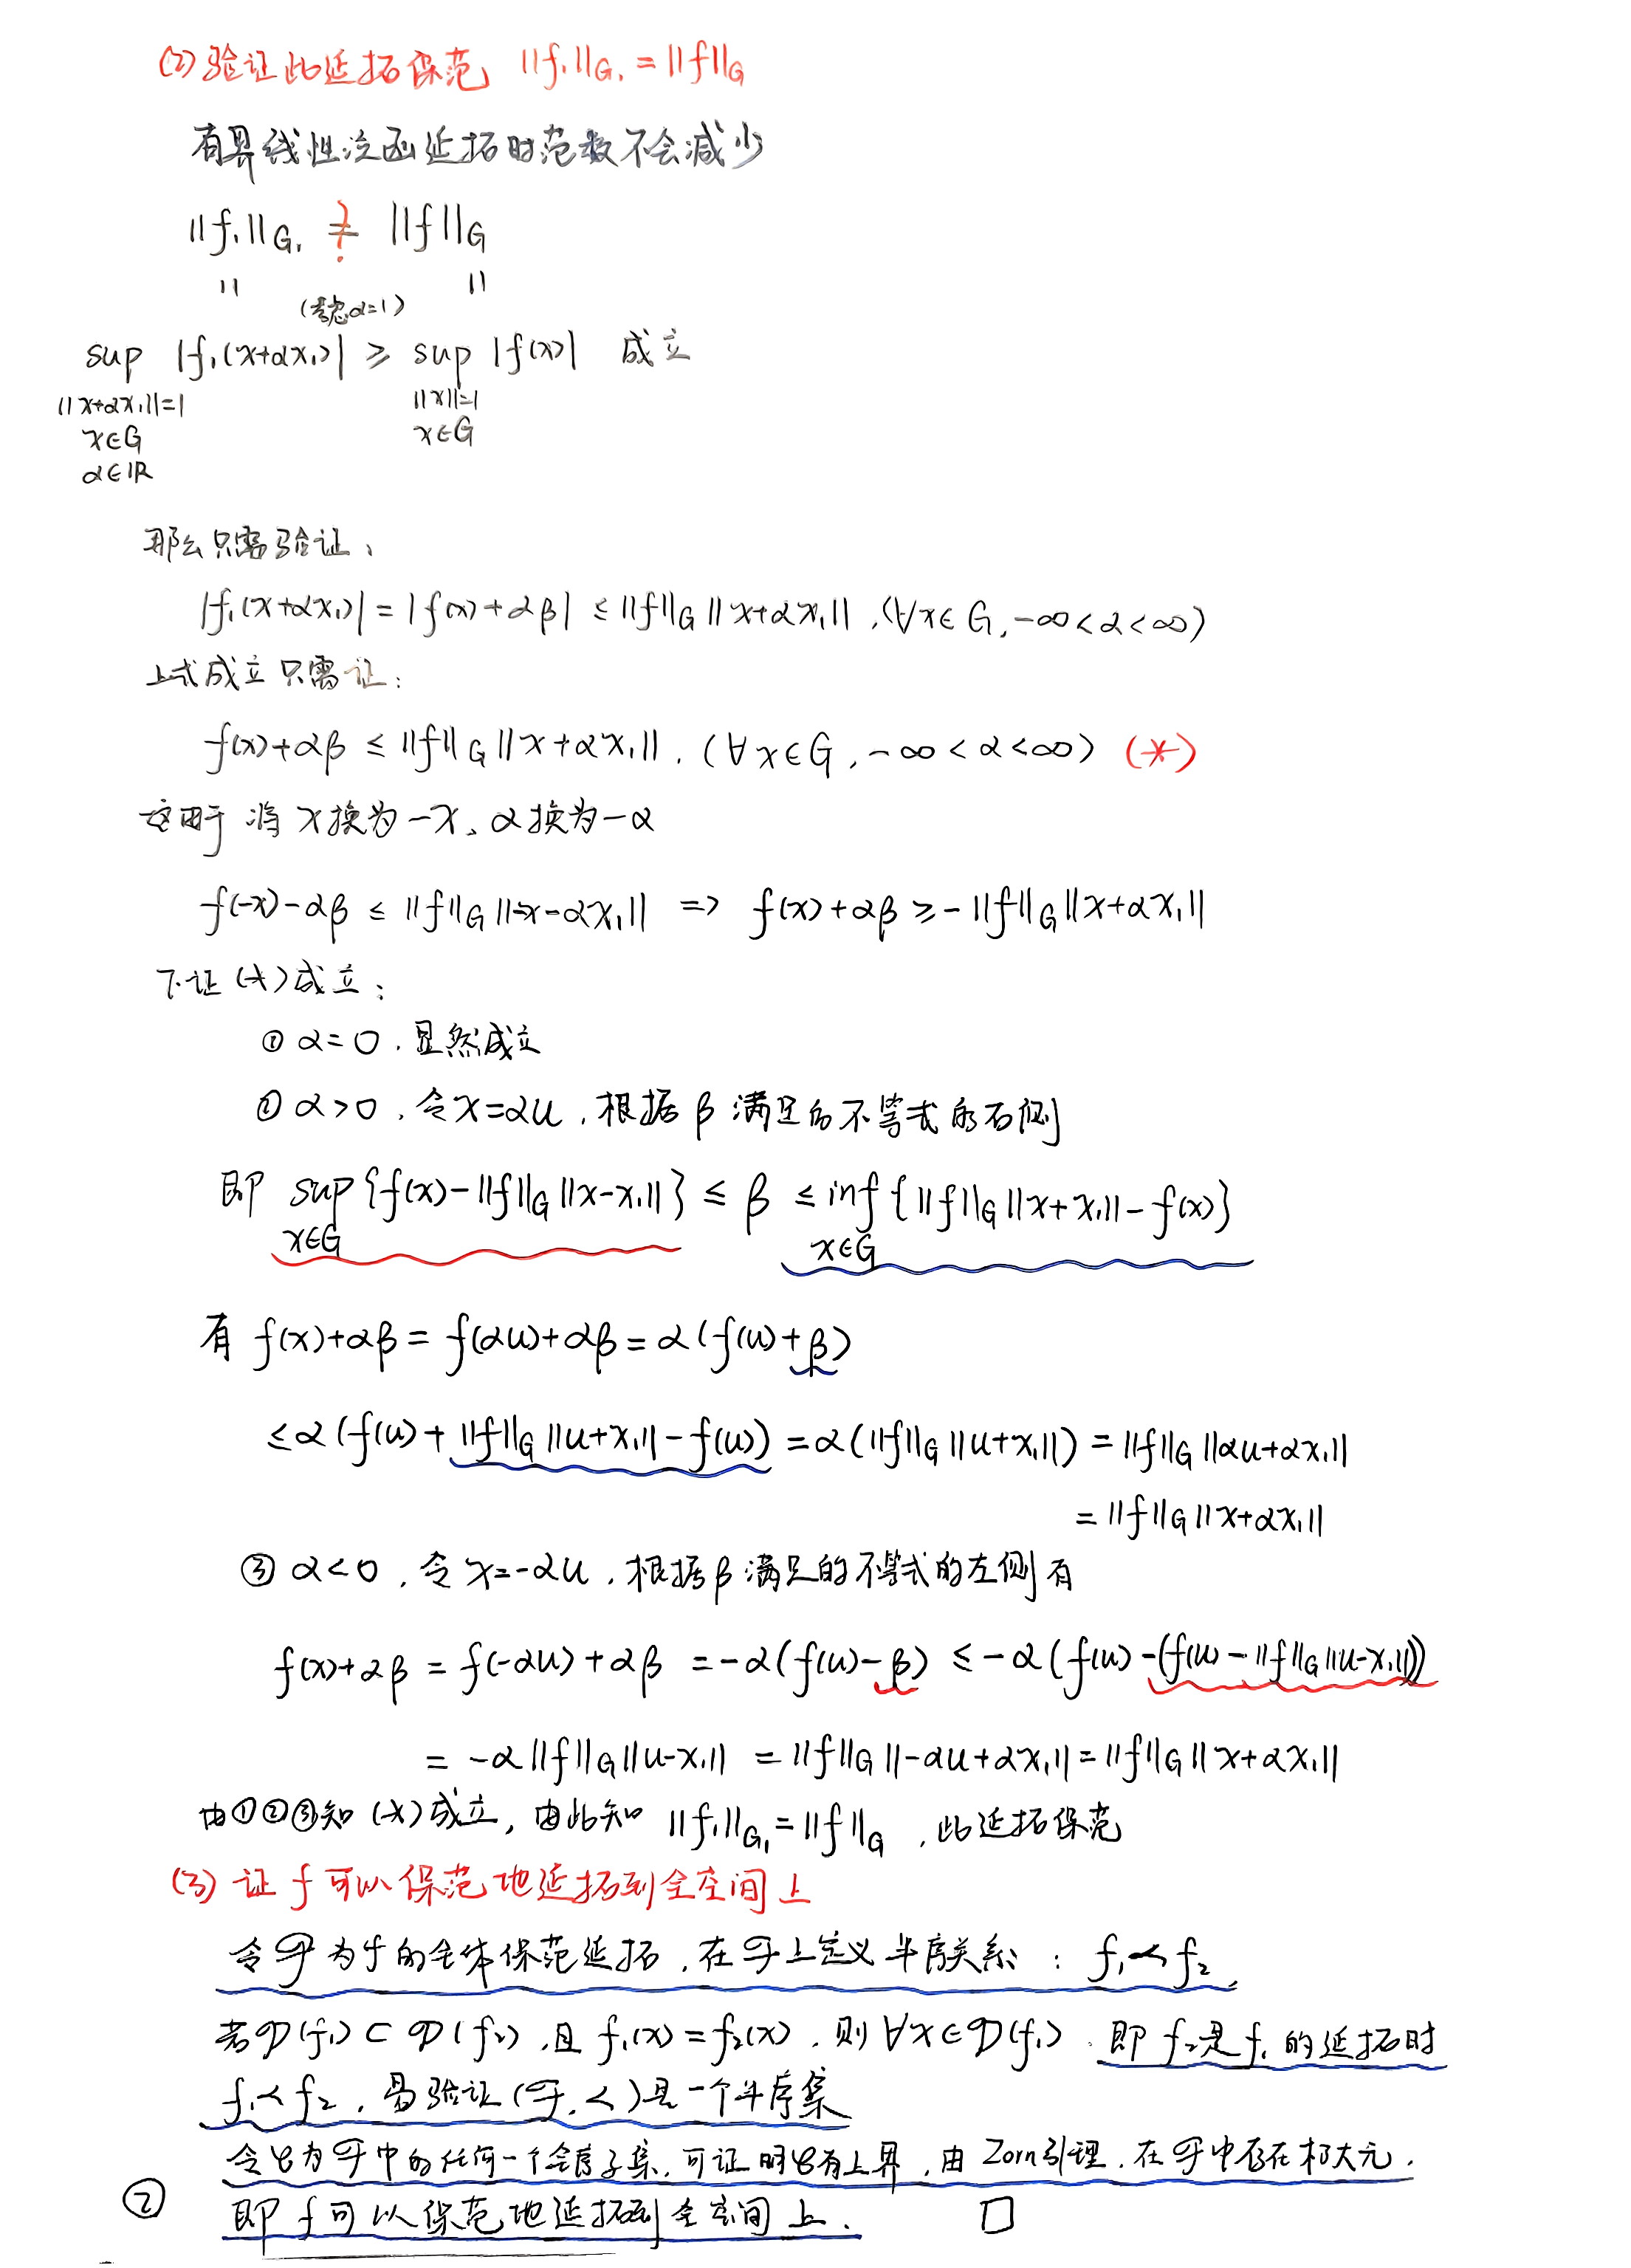 (2) 验证此延拓保范 ||f₁||_G₁ = ||f||_G
有界线性泛函延拓时范数不会减少
||f₁||_G₁ ≟ ||f||_G
|| ||
(考虑α=1)
sup |f₁(x+αx₁)| ≥ sup |f(x)| 成立
||x+αx₁||=1 ||x||=1
x∈G x∈G
α∈ℝ
那么只需验证:
|f₁(x+αx₁)| = |f(x)+αβ| ≤ ||f||_G ||x+αx₁||, (∀x∈G, -∞<α<∞)
上式成立只需证:
f(x)+αβ ≤ ||f||_G ||x+αx₁||. (∀x∈G, -∞<α<∞) (*)
这由于 将x换为-x、α换为-α
f(-x)-αβ ≤ ||f||_G ||-x-αx₁|| => f(x)+αβ ≥ -||f||_G ||x+αx₁||
下证(*)成立:
① α=0, 显然成立
② α>0, 令x=αu, 根据β满足的不等式的右侧
即 sup{f(x)-||f||_G ||x-x₁||} ≤ β ≤ inf{||f||_G ||x+x₁||-f(x)}
x∈G x∈G
有 f(x)+αβ = f(αu)+αβ = α(f(u)+β)
≤α(f(u)+||f||_G ||u+x₁||-f(u)) = α(||f||_G ||u+x₁||) = ||f||_G ||αu+αx₁||
= ||f||_G ||x+αx₁||
③ α<0, 令x=-αu, 根据β满足的不等式的左侧有
f(x)+αβ = f(-αu)+αβ = -α(f(u)-β) ≤ -α(f(u)-(f(u)-||f||_G ||u-x₁||))
= -α||f||_G ||u-x₁|| = ||f||_G ||-αu+αx₁|| = ||f||_G ||x+αx₁||
由①②③知(*)成立, 由此知 ||f₁||_G₁ = ||f||_G, 此延拓保范
(3) 证f可以保范地延拓到全空间上
令𝓕为f的全体保范延拓, 在𝓕上定义半序关系: f₁≺f₂,
若𝒟(f₁)⊂𝒟(f₂), 且 f₁(x)=f₂(x), 则∀x∈𝒟(f₁). 即f₂是f₁的延拓时
f₁≺f₂, 易验证(𝓕,≺)是一个半序集
令𝒞为𝓕中的任何一个全序子集, 可证明𝒞有上界, 由Zorn引理, 在𝓕中存在极大元.
② 即f可以保范地延拓到全空间上. □